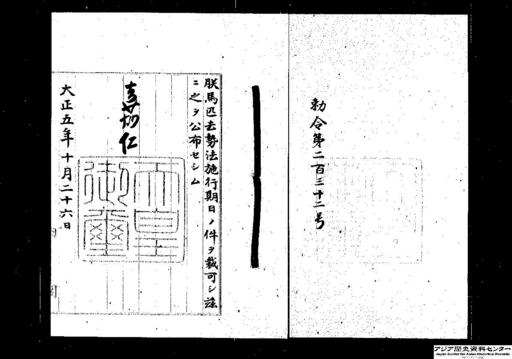 勅令第二百三十二号
朕馬匹去勢法施行期日ノ件ヲ裁可シ茲
ニ之ヲ公布セシム
嘉仁
天皇
御璽
大正五年十月二十六日
内閣
アジア歴史資料センター
Japan Center for Asian Historical Records